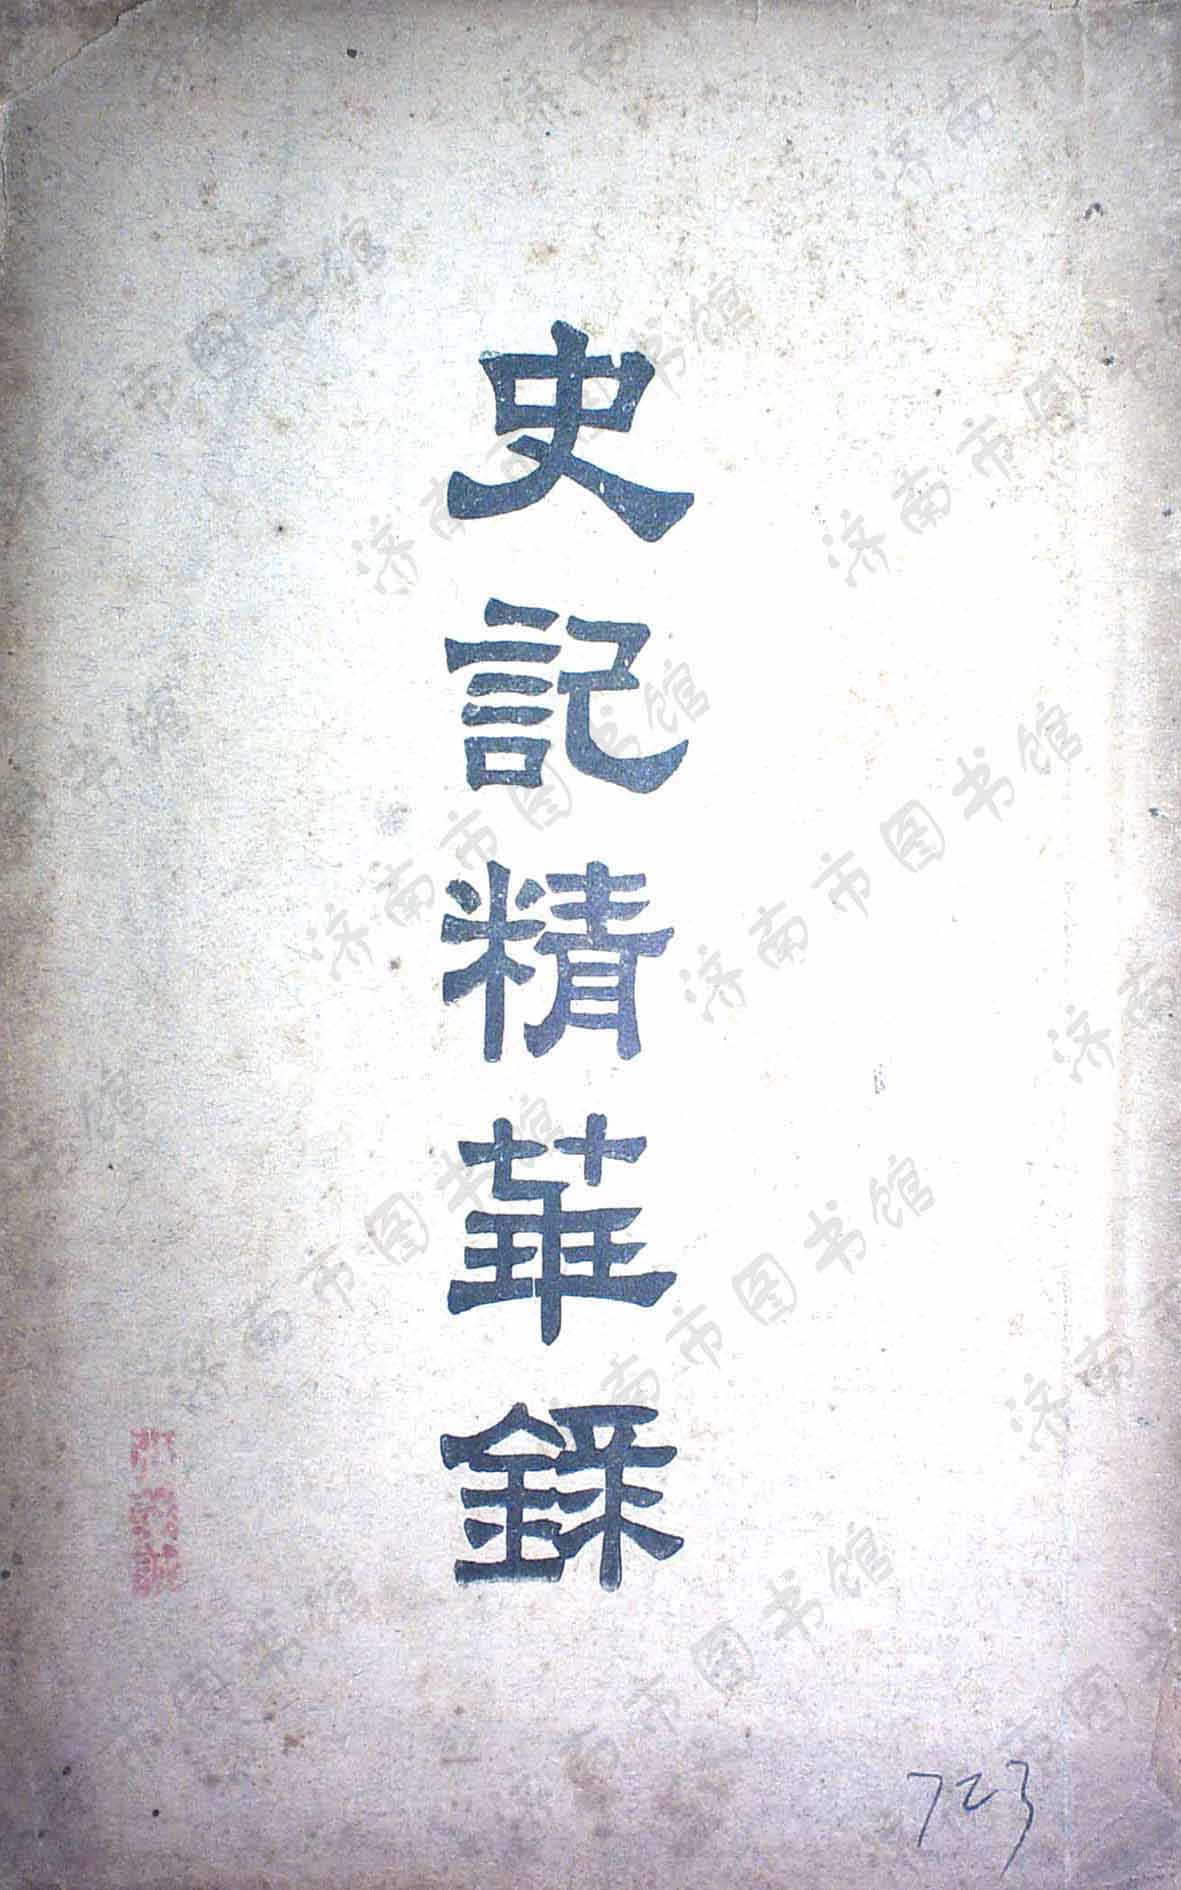 史記精華錄
723
济南市图书馆